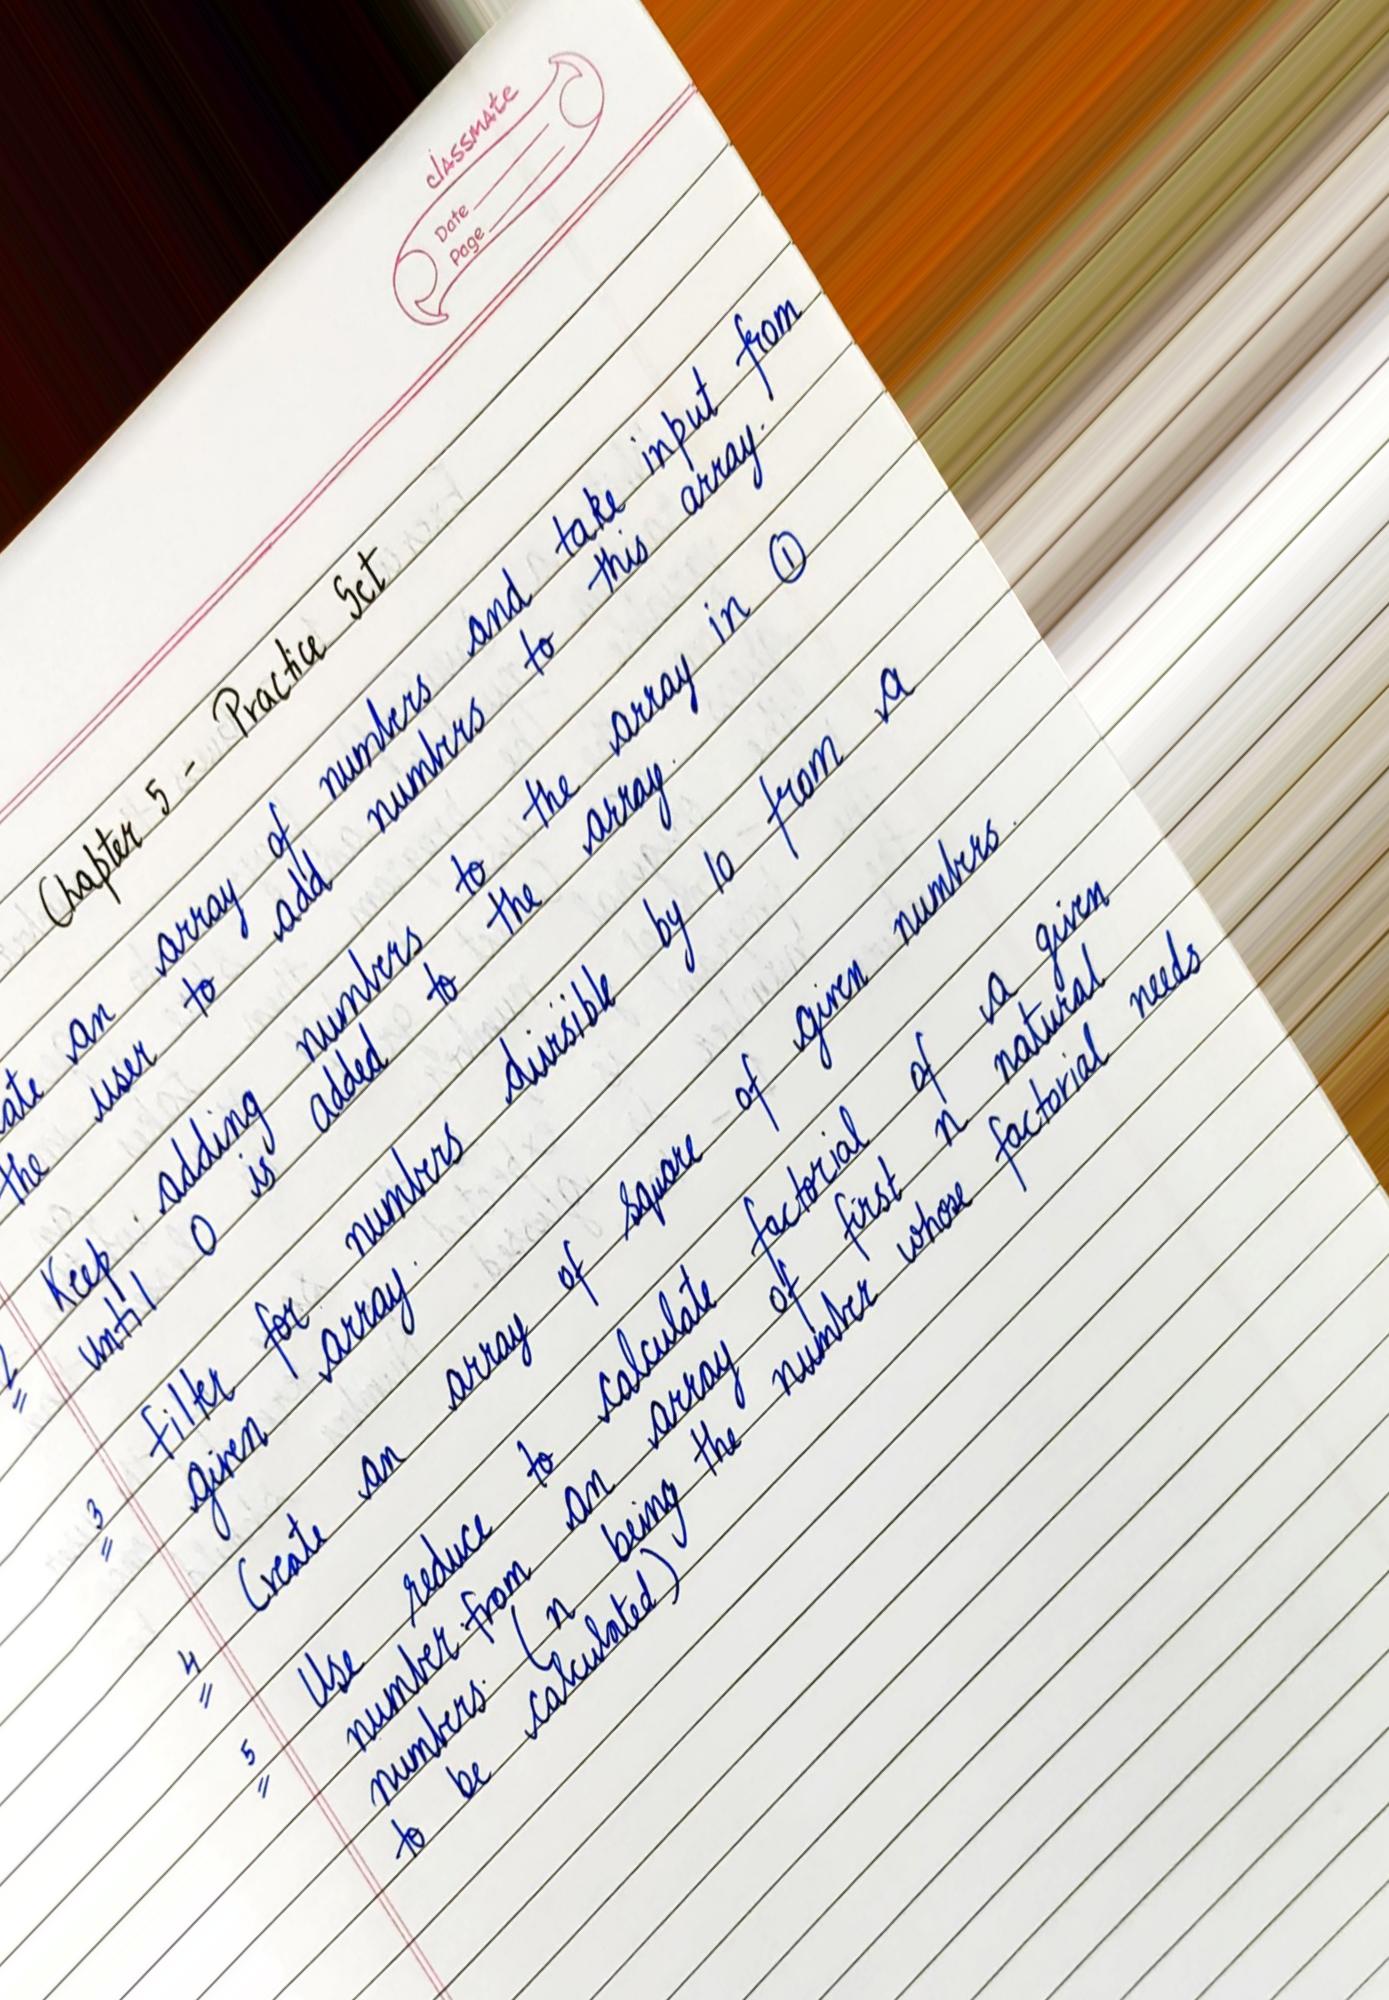 classmate
Date
Page
Chapter 5 - Practice Set
an array of numbers and take input from
the user to add numbers to this array.
2 Keep adding numbers to the array in ①
until 0 is added to the array.
3 Filter for numbers divisible by 10 from a
given array.
4 Create an array of square of given numbers.
5 Use reduce to calculate factorial of a given
number from an array of first n natural
numbers. (n being the number whose factorial needs
to be calculated)